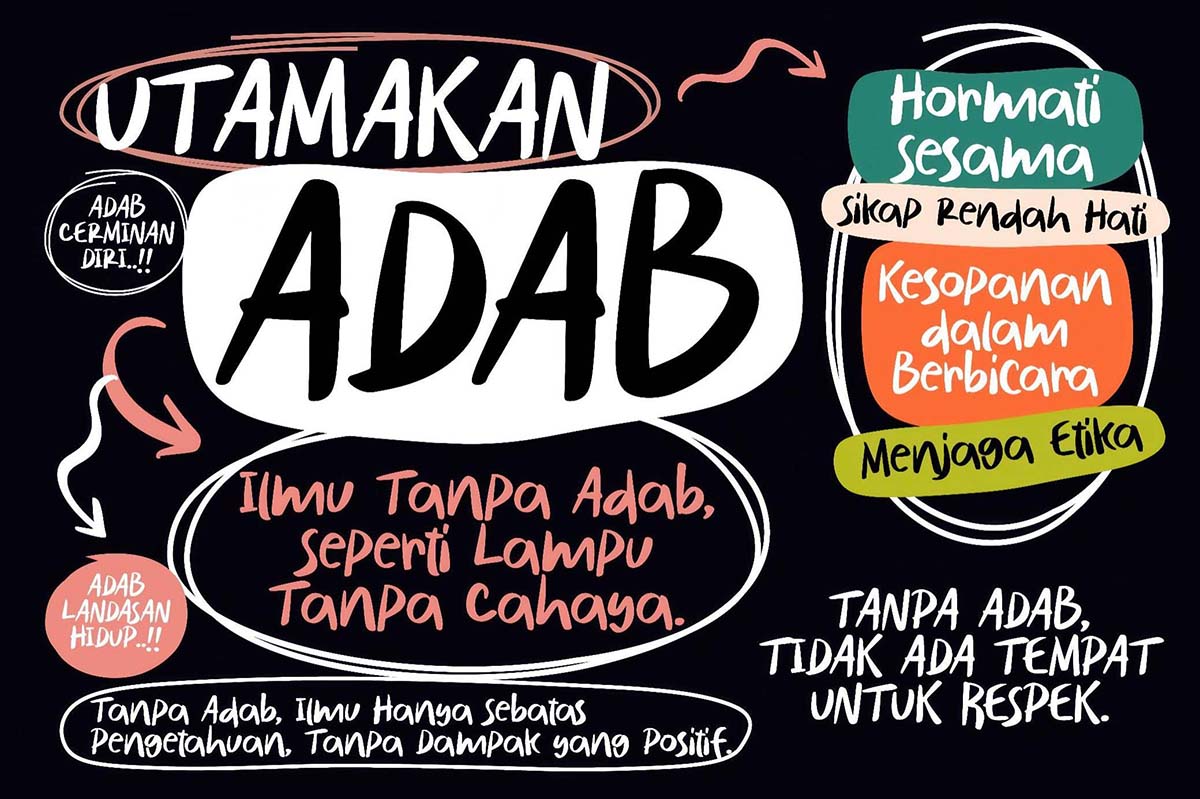 UTAMAKAN
ADAB
ADAB
CERMINAN
DIRI..!!
Ilmu Tanpa Adab,
seperti Lampu
Tanpa Cahaya.
ADAB
LANDASAN
HIDUP..!!
Tanpa Adab, Ilmu Hanya sebatas
Pengetahuan, Tanpa Dampak yang Positif.
Hormati
sesama
Sikap Rendah Hati
Kesopanan
dalam
Berbicara
Menjaga Etika
TANPA ADAB,
TIDAK ADA TEMPAT
UNTUK RESPEK.